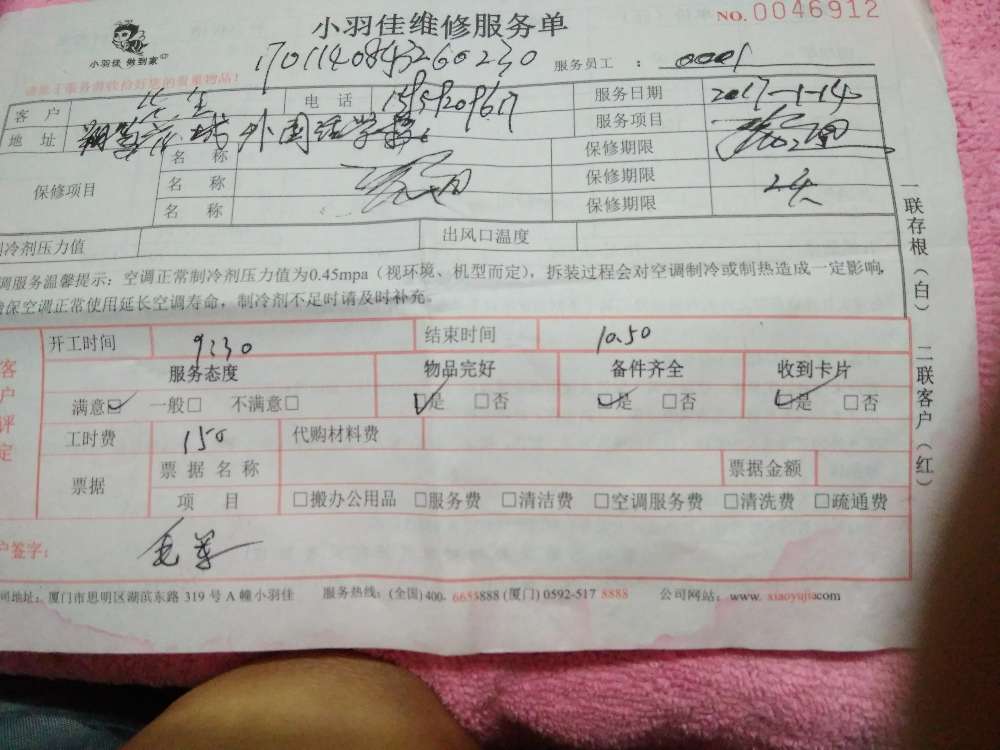 小羽佳维修服务单
NO. 0046912
小羽佳 做到家
170114084326 0230
服务员工 : 0001
客 户
电 话
服务日期 2017-1-14
地 址 外国语学
服务项目
保修项目
名 称
保修期限
名 称
保修期限 2天
名 称
保修期限
制冷剂压力值
出风口温度
调服务温馨提示：空调正常制冷剂压力值为0.45mpa（视环境、机型而定），拆装过程会对空调制冷或制热造成一定影响，
保空调正常使用延长空调寿命，制冷剂不足时请及时补充。
一联存根（白） 二联客户（红）
客户评定
开工时间 9:30 结束时间 10.50
服务态度 物品完好 备件齐全 收到卡片
满意☑ 一般□ 不满意□ ☑是 □否 ☑是 □否 ☑是 □否
工时费 150 代购材料费
票据
票 据 名 称 票据金额
项 目 □搬办公用品 □服务费 □清洁费 □空调服务费 □清洗费 □疏通费
户签字：
司地址：厦门市思明区湖滨东路 319 号 A 幢小羽佳 服务热线：(全国)400- 6655888 (厦门) 0592-517 8888 公司网站：www. xiaoyujia.com